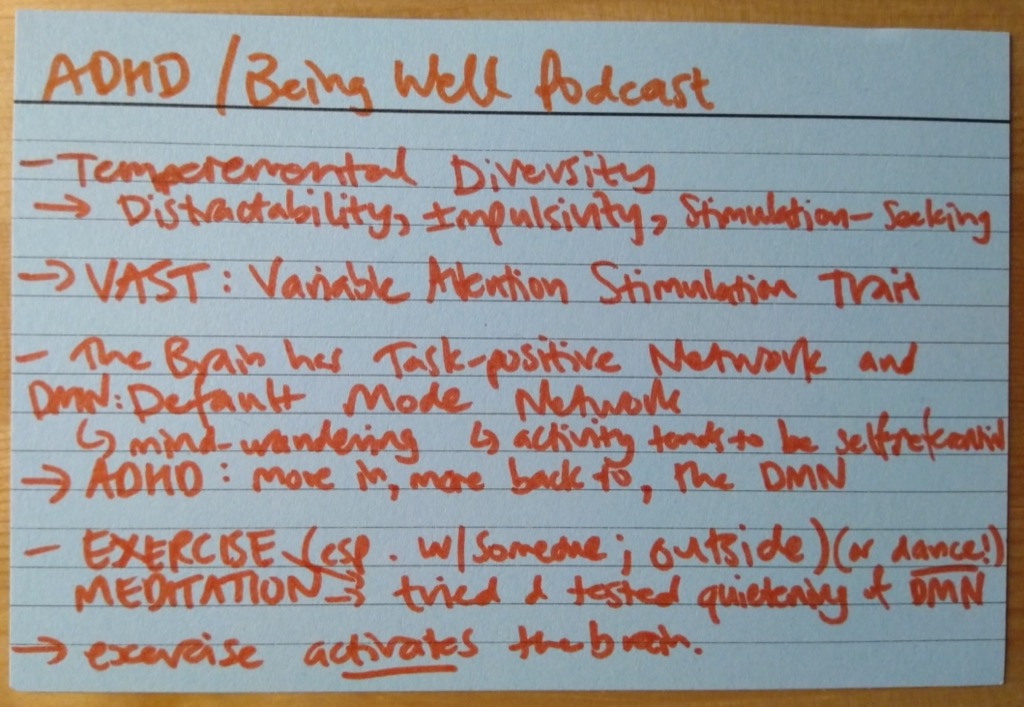 ADHD / Being Well Podcast
- Temperemental Diversity
→ Distractability, Impulsivity, Stimulation-Seeking
→ VAST: Variable Attention Stimulation Trait
- The Brain has Task-positive Network and
DMN: Default Mode Network
↳ mind-wandering ↳ activity tends to be selfreferential
→ ADHD: more in, more back to, the DMN
- EXERCISE (esp. w/ someone; outside) (or dance!)
MEDITATION → tried & tested quietening of DMN
→ exercise activates the brain.